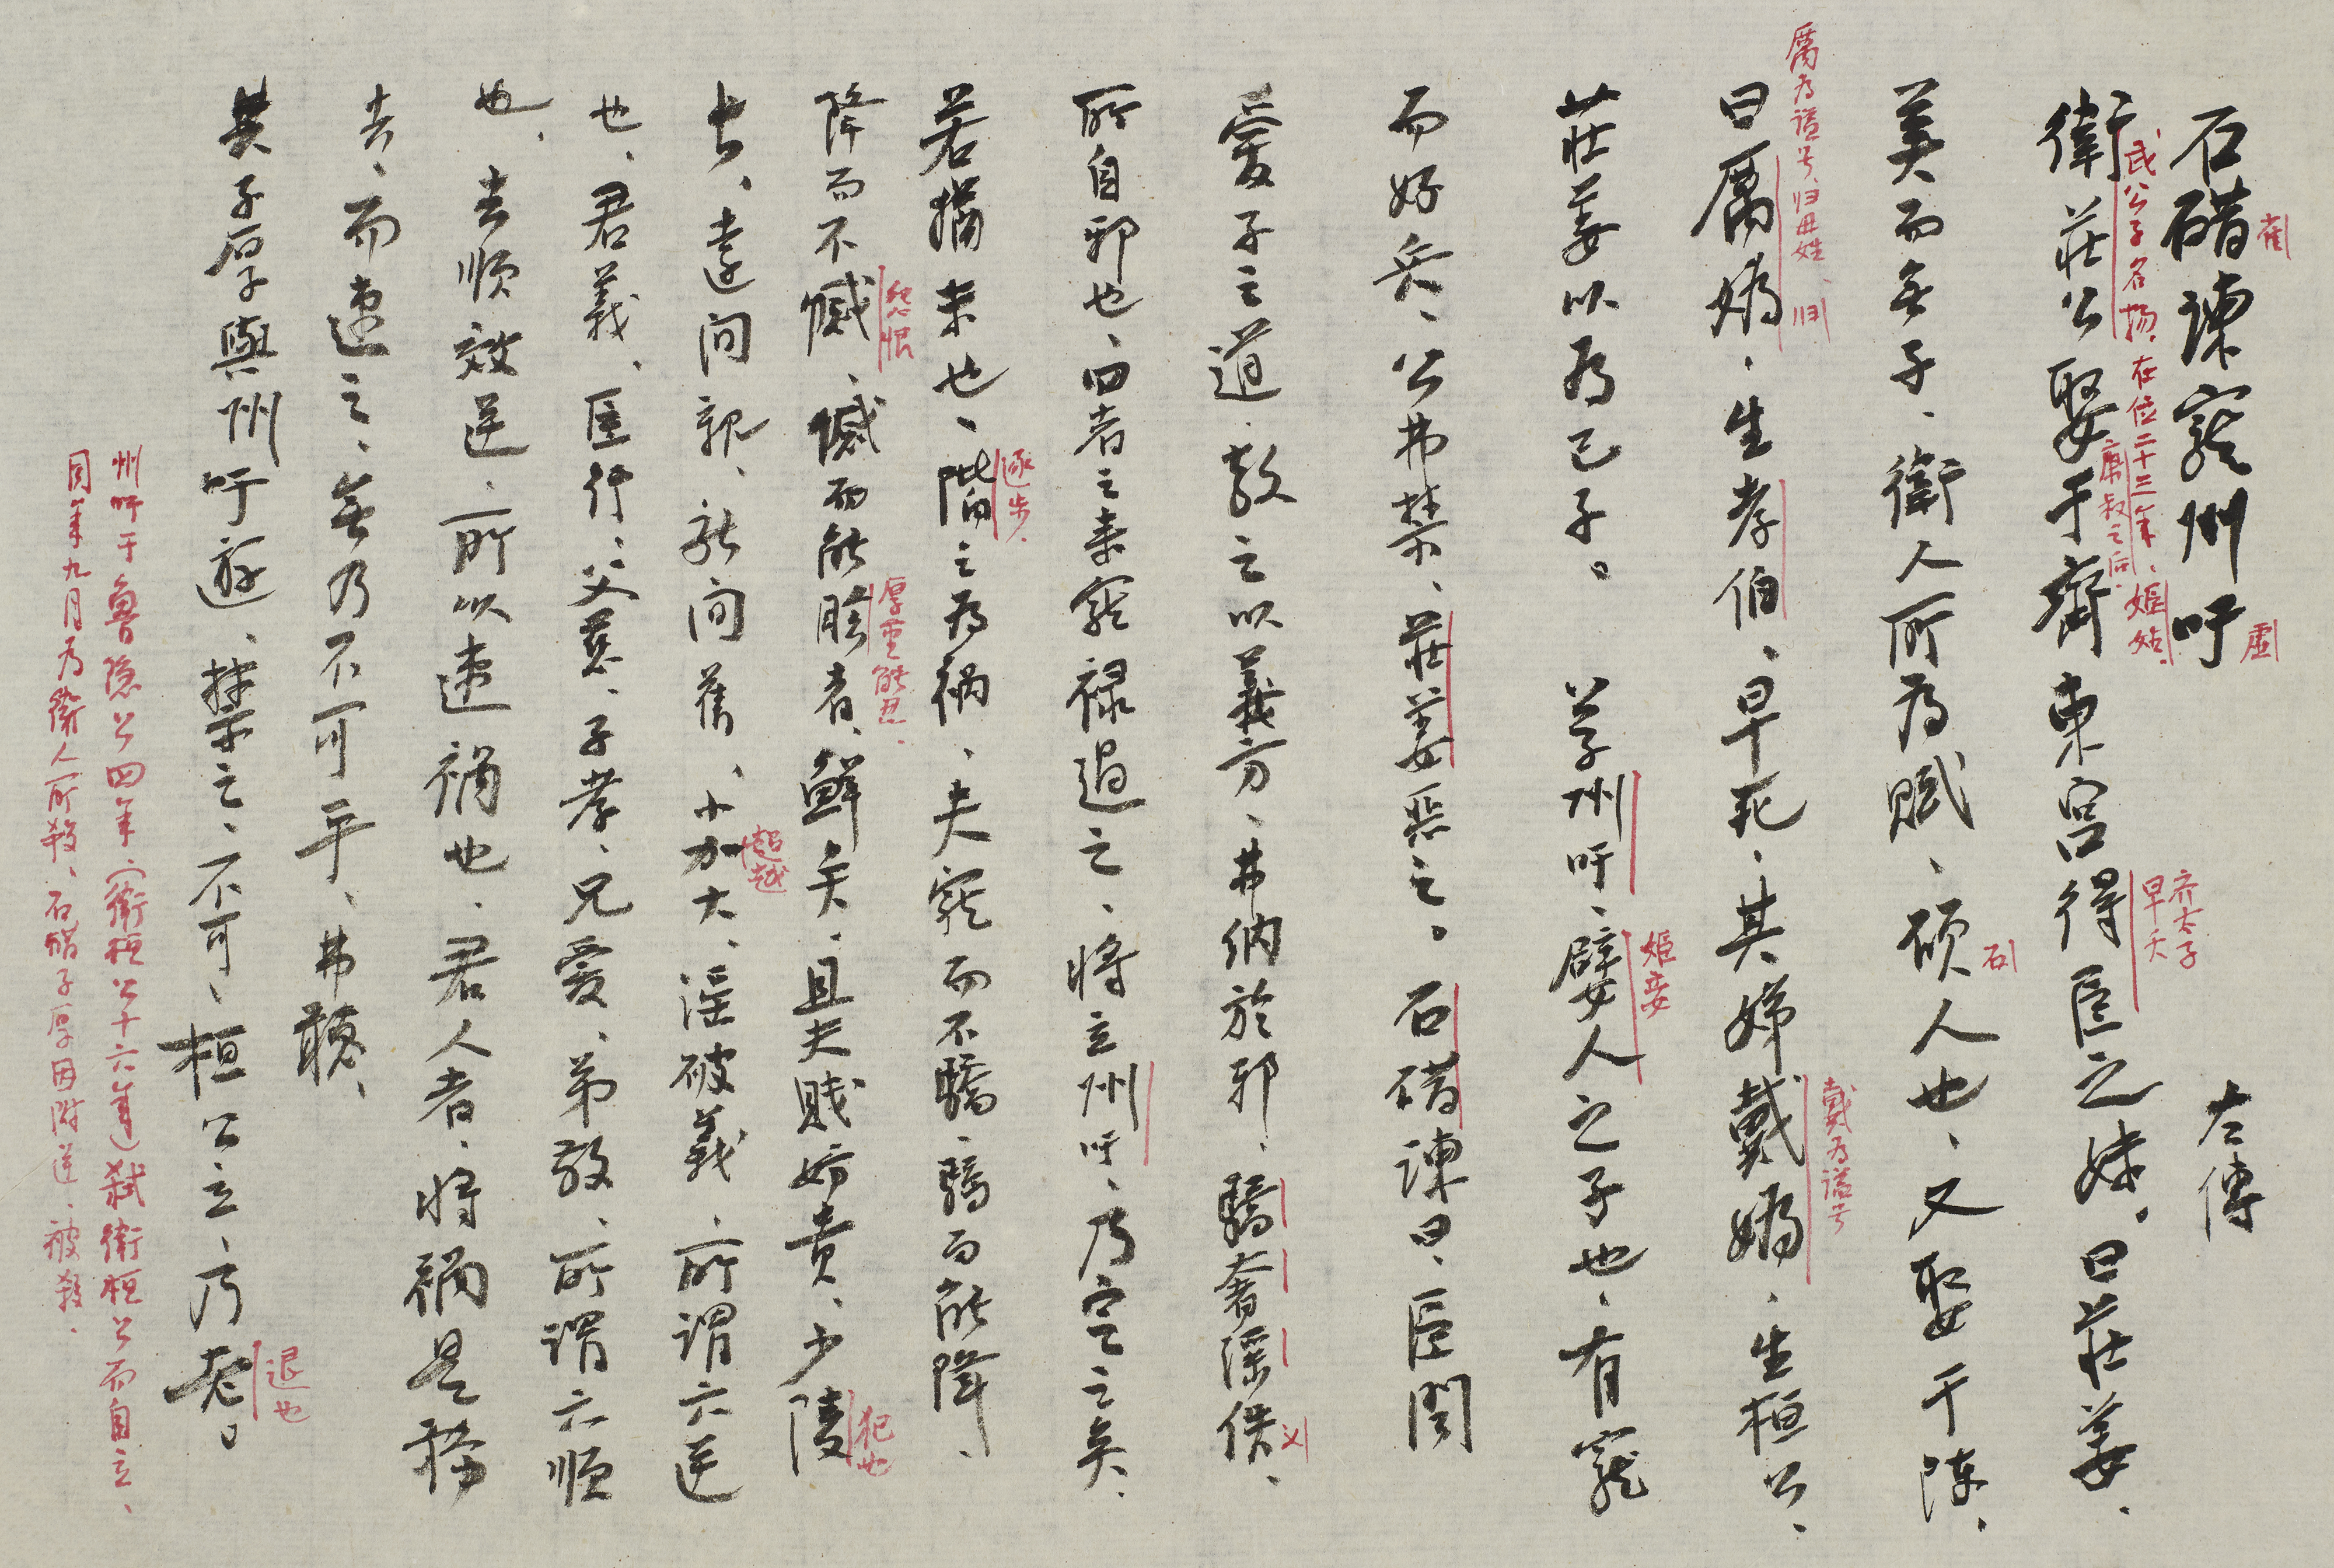 石碏諫寵州吁 左傳
鹊
虛
衛莊公娶于齊東宮得臣之妹。曰莊姜、
武公子名揚、在位二十三年、姬姓、
康叔之后、
齐太子
早夭
美而無子、衛人所為賦、碩人也、又娶于陳、
石
曰厲媯、生孝伯、早死、其娣戴媯、生桓公、
厲为謚号、归母姓、归
戴为謚号
莊姜以為己子。公子州吁、嬖人之子也、有寵
姬妾
而好兵、公弗禁、莊姜惡之。石碏諫曰、臣聞
愛子之道、教之以義方、弗納於邪、驕奢淫佚、
义
所自邪也、四者之来寵禄過之、將立州吁、乃定之矣、
若猶未也、階之為禍、夫寵而不驕、驕而能降、
逐步、
降而不憾、憾而能眕者、鮮矣、且夫賤妨貴、少陵
怨恨
厚重能忍、
犯也
長、遠間親、新間舊、小加大、淫破義、所謂六逆
超越
也、君義、臣行、父慈、子孝、兄愛、弟敬、所謂六順
也、去順效逆、所以速禍也、君人者、將禍是務
去、而速之、無乃不可乎、弗聽、
其子厚與州吁遊、禁之、不可、桓公立、乃老。
退也
州吁于魯隱公四年、(衛桓公十六年)弒衛桓公而自立、
同年九月为衛人所殺、石碏子厚因附逆、被殺、